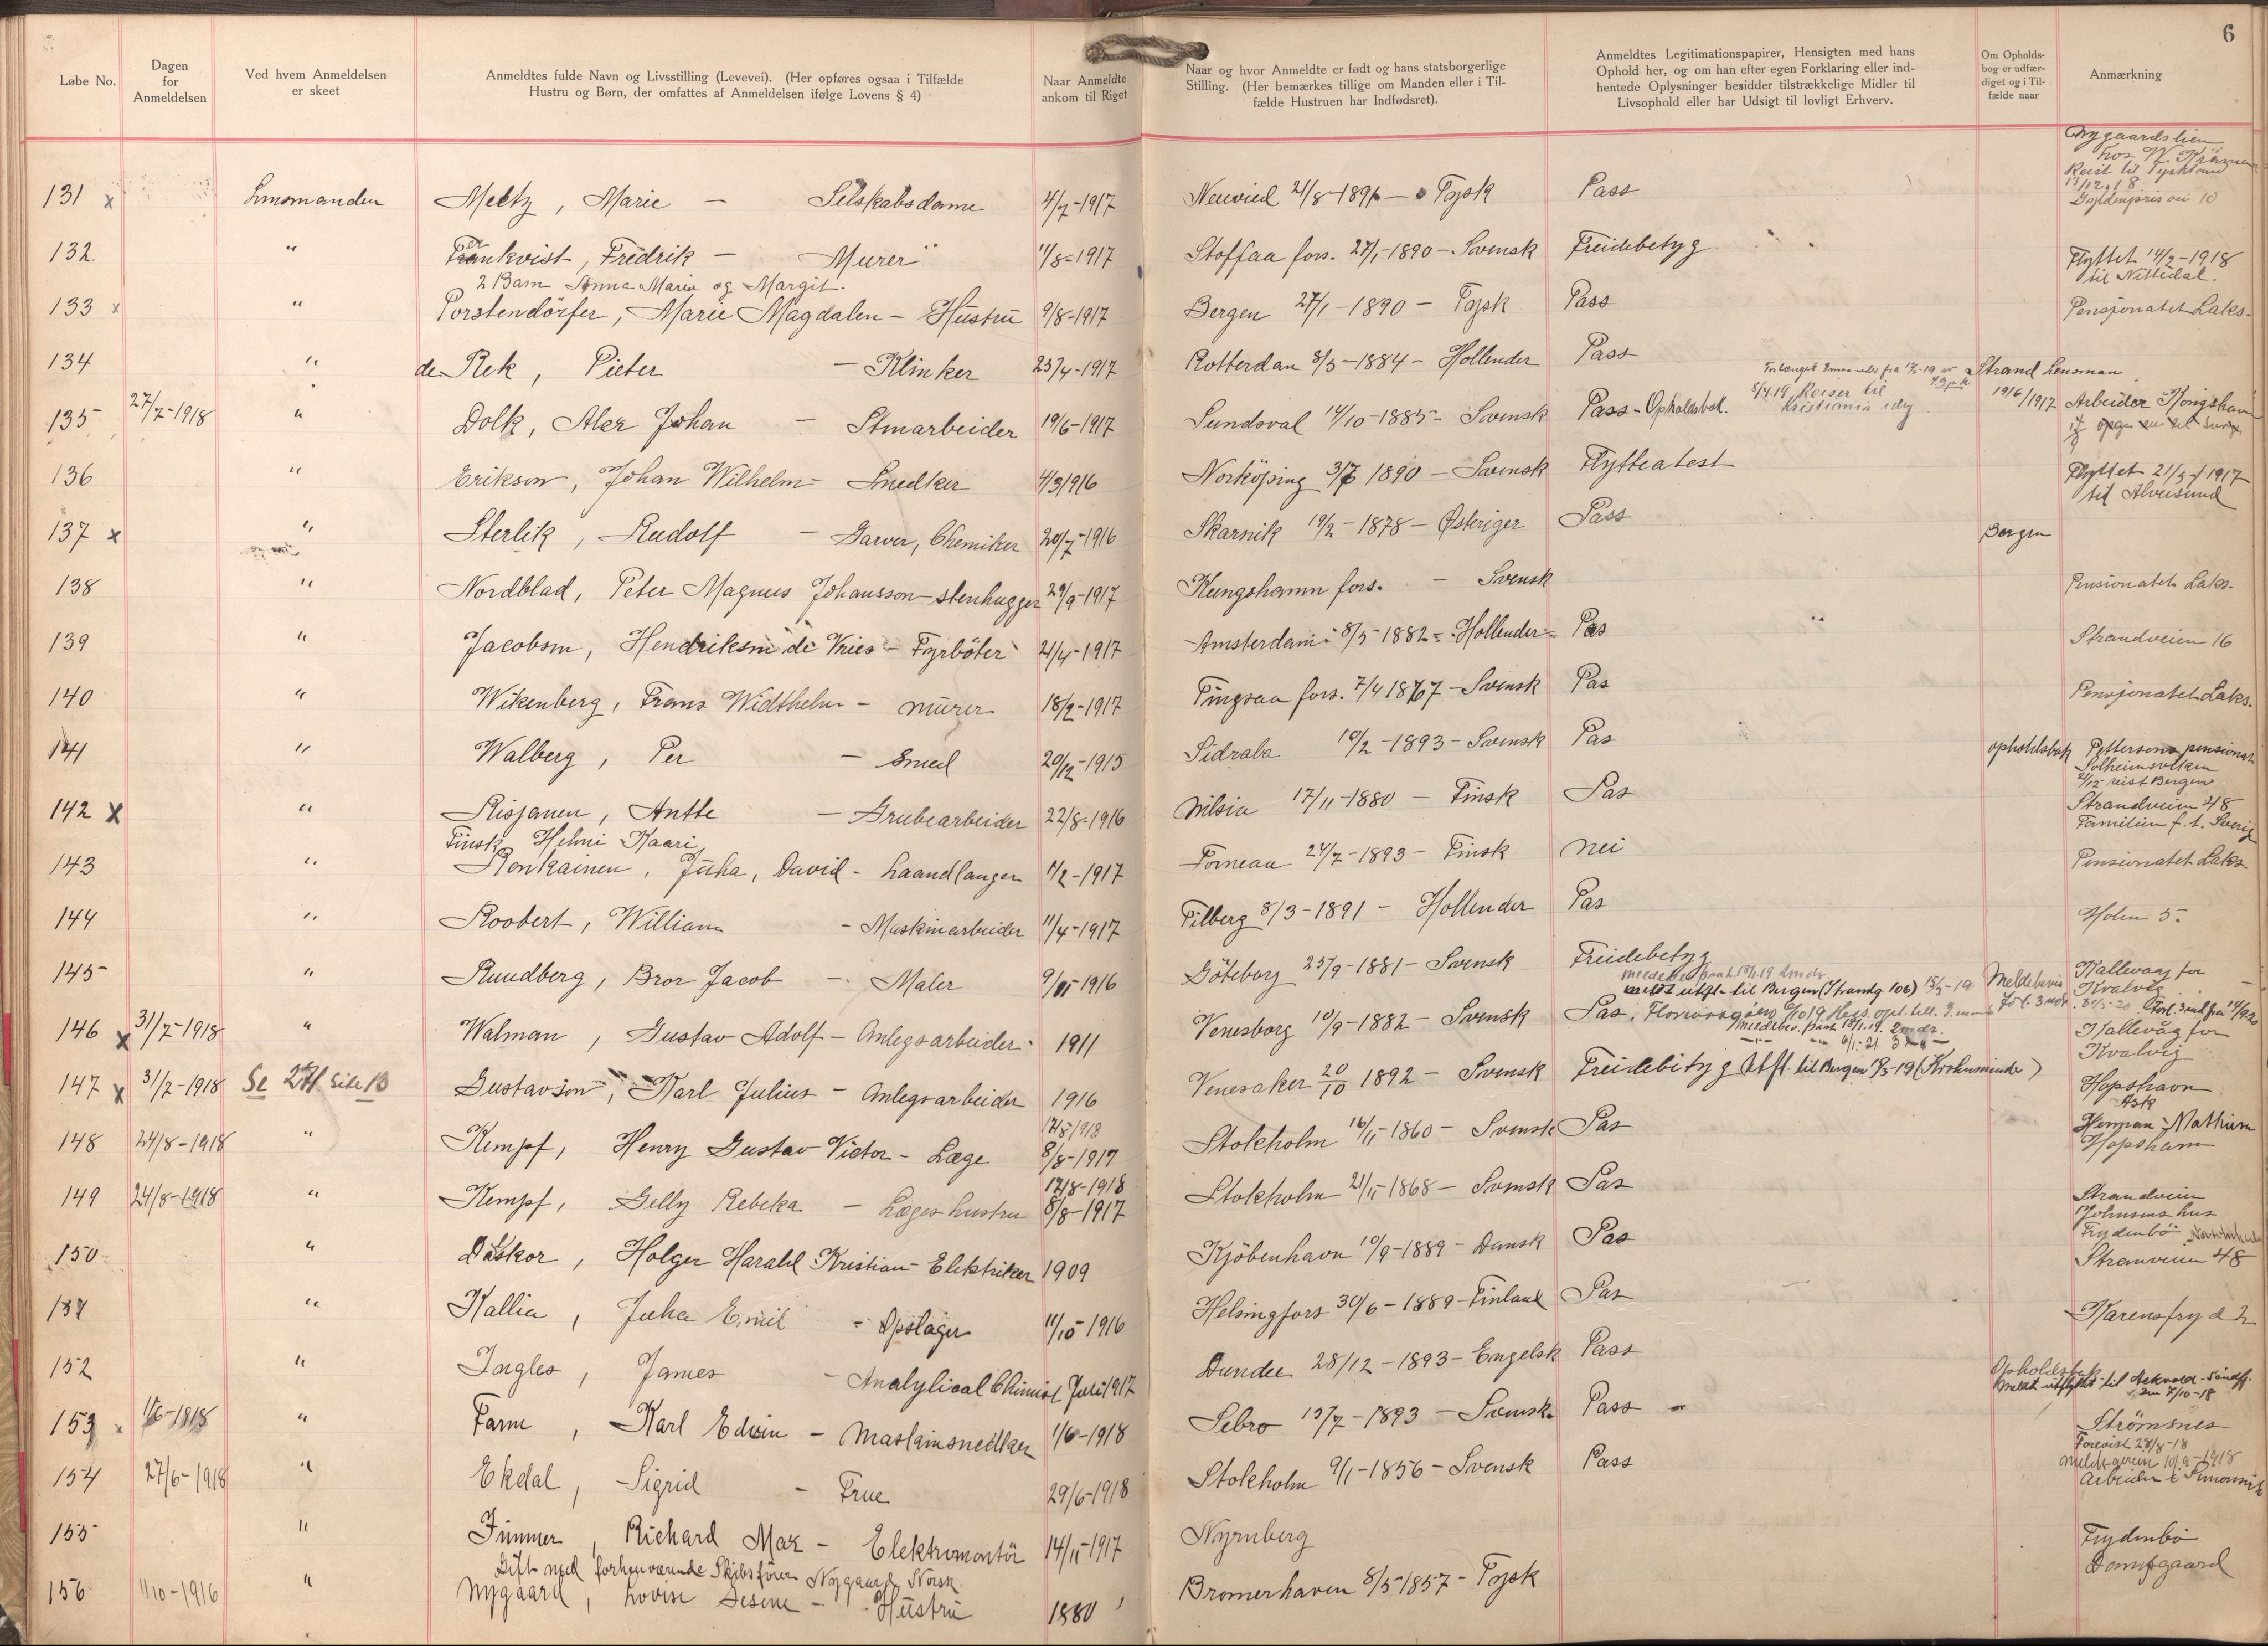 6
Løbe No.
Dagen for Anmeldelsen
Ved hvem Anmeldelsen er skeet
Anmeldtes fulde Navn og Livsstilling (Levevei). (Her opføres ogsaa i Tilfælde
Hustru og Børn, der omfattes af Anmeldelsen ifølge Lovens § 4)
Naar Anmeldte
ankom til Riget
Naar og hvor Anmeldte er født og hans statsborgerlige
Stilling. (Her bemærkes tillige om Manden eller i Til-
fælde Hustruen har Indfødsret).
Anmeldtes Legitimationspapirer, Hensigten med hans
Ophold her, og om han efter egen Forklaring eller ind-
hentede Oplysninger besidder tilstrækkelige Midler til
Livsophold eller har Udsigt til lovligt Erhverv.
Om Opholds-
bog er udfær-
diget og i Til-
fælde naar
Anmærkning
Nygaardslien
hos
Reist til Tyskland
131 x Lensmanden Meltz, Marie - Selskabsdame 4/7-1917 Neuvied 21/8-1896 - Tysk Pass
132. " Frankvist, Fredrik - Murer 11/8-1917 Stoffaa fors. 27/1-1890 - Svensk Freidebetyg Flyttet 14/2-1918
til Nittedal.
2 Barn Anna Maria og Margit.
133 x " Porstendörfer, Marie Magdalen - Hustru 9/8-1917 Bergen 27/1-1890 - Tysk Pass Pensjonatet Laks-
134 " de Rek, Pieter - Klinker 23/4-1917 Rotterdan 8/5-1884 - Hollender Pass
Strand Lensman
135 27/7-1918 " Dolk, Alex Johan - Stmarbeider 19/6-1917 Sundsval 14/10-1885 - Svensk Pass - Opholdsbok. 8/4 19 Reiser til
Kristiania idg 19/6/1917 Arbeider Kongshavn
136 " Erikson, Johan Wilhelm - Snedker 4/3 1916 Norköping 3/7 1890 - Svensk Flytteatest Flyttet 21/5-1917
til Alversund
137 x " Sterlik, Rudolf - Garver, Chemiker 20/7-1916 Skarnik 19/2-1878 - Østeriger Pass Bergen
138 " Nordblad, Peter Magnus Johansson - stenhugger 29/9-1917 Kungshamn fors. - Svensk Pensionatet Laks-
139 " Jacobsm, Hendriksm de Vries - Fyrböter 21/4-1917 Amsterdam 8/5-1882 - Hollender - Pas Strandveien 16
140 " Wikenberg, Frans Widthelm - murer 18/2-1917 Tingsaa fors. 7/4 1867 - Svensk Pas Pensjonatet Laks-
141 " Walberg, Per - Smed 20/12-1915 Sidraba 10/2-1893 - Svensk Pas opholdsbok Pettersons pensionat
Solheimsveien
2/12 reist Bergen
142 X " Risjanen, Antte - Grubearbeider 22/8-1916 Nilsia 17/11-1880 - Finsk Pas Strandveien 48
Familien f. t. Sverig
Finsk Helmi Kaari
143 " Ronkainen, Juha, David - haandlanger 1/2-1917 Torneaa 24/7-1893 - Finsk nei Pensionatet Laks-
144 " Roobert, William - Maskinarbeider 11/4-1917 Tilberg 8/3-1891 - Hollender Pas Holm 5.
145 " Rundberg, Bror Jacob - Maler 9/11-1916 Göteborg 25/9-1881 - Svensk Freidebetyg Kallevaag for
Kvalvig
meldt utfl. til Bergen (Strandg. 106) 15/3-19 Meldebevis
146 x 31/7-1918 " Walman, Gustav Adolf - Anlegsarbeider 1911 Venesborg 10/9-1882 - Svensk Pas. Kallevåg for
Kvalvig
Meldebev. paat. 18/1.19. 2 mdr.
147 x 31/7-1918 Se 271 side 13 Gustavson, Karl Julius - Anlegsarbeider 1916 Venesaker 20/10 1892 - Svensk Freidebityg Utfl. til Bergen 19/3-19 (Krohnsminde) Hopshavn
Ask
148 24/8-1918 " Kempf, Henry Gustav Victor - Læge 17/8 1918
8/8-1917 Stokholm 16/11-1860 - Svensk Pas Herman Mathiesn
Hopshavn
149 24/8-1918 " Kempf, Gelly Rebeka - Læges hustru 17/8-1918
8/8-1917 Stokholm 21/11-1868 - Svensk Pas Strandveien
Johnsens hus
Frydenbö
150 " Daskor, Holger Harald Kristian - Elektriker 1909 Kjöbenhavn 10/9-1889 - Dansk Pas Stranveien 48
" Kallia, Juha Emil - Opslager 11/10-1916 Helsingfors 30/6-1889 - Finland Pas Karensfryd 2
152 " Ingles, James - Analytical Chimist Juli 1917 Dundee 28/12-1893 - Engelsk Pass Opholdsbok
Meldt utflyttet til Askvold - Söndfj.
den 7/10-18
153 x 1/6-1918 " Farm, Karl Edvin - Maskinsnedker 1/6-1918 Sebro 13/7-1893 - Svensk Pass - Strömsnes
Forevist 28/8-18
154 27/6-1918 " Ekdal, Sigrid - Frue 29/6-1918 Stokholm 9/1-1856 - Svensk Pass
155 " Zimmer, Richard Max - Elektromontör 14/11-1917 Nyrnberg Frydenbö
Damsgaard
Gift med forhenværende Skibsfører Nygaard Norsk.
156 1/10-1916 " Nygaard, Lovise Gesene - Hustru 1880 Bremerhaven 8/5-1857 - Tysk